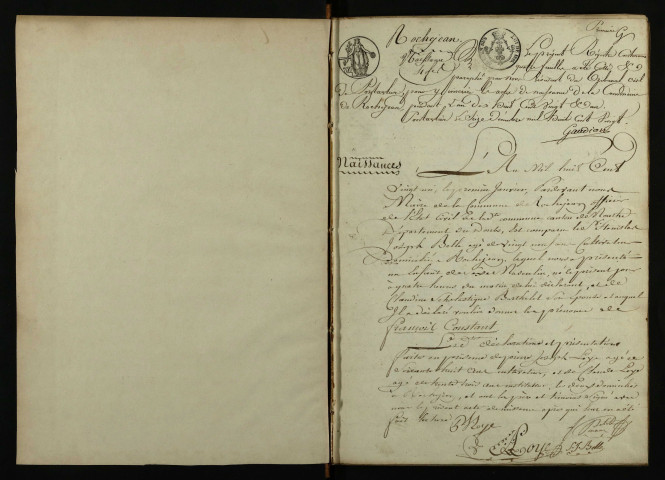 Rochejean
Premier
Le présent Registre contenant
feuilles a été coté et
paraphé par nous Président du tribunal civil
de Pontarlier, pour y inscrire les actes de naissances de la Commune
de Rochejean, pendant l'an dix huit cent vingt et un.
Pontarlier le seize décembre mil huit cent vingt.
Naissances
L'An Mil huit Cent
vingt un, le premier Janvier, Pardevant nous
Maire de la Commune de Rochejean officier
de l'Etat Civil de la dte commune canton de Mouthe
Département du Doubs, est comparu le Sr Stanislas
Joseph Belle agé de vingt neuf ans Cultivateur
domicilié à Rochejean, lequel nous a présenté
un Enfant du sexe Masculin, né le présent jour
à quatre heures du matin de lui déclarant, et de
Claudine Scholastique Berthelet son Epouse et auquel
Il a déclaré vouloir donner les prénoms de
François Constant
Les dtes déclarations et présentations
faites en présence de pierre Joseph Loye agé de
soixante huit ans cultivateur, et de Claude Loye
agé de trente huit ans instituteur, les deux domiciliés
à Rochejean, et ont les père et témoins signé avec
nous le présent acte de naissance après qu'il leur en a été
fait lecture
C Loye
Loye
S J Belle